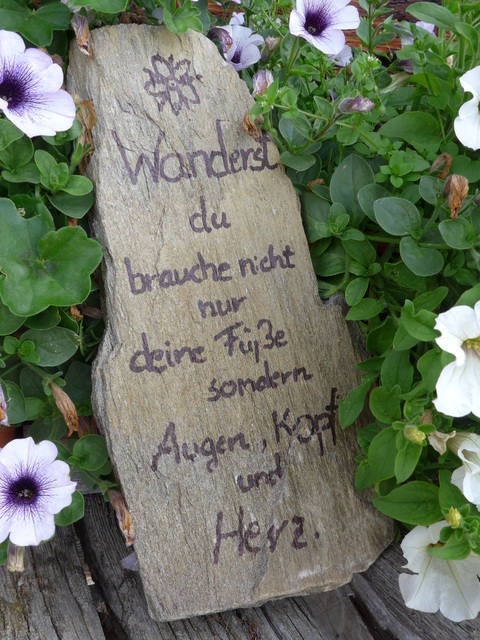 Wanderst
du
brauche nicht
nur
deine Füße
sondern
Augen, Kopf
und
Herz.